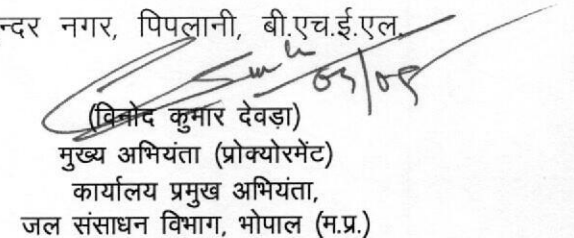 न्दर नगर, पिपलानी, बी.एच.ई.एल.
03/05
(विनोद कुमार देवड़ा)
मुख्य अभियंता (प्रोक्योरमेंट)
कार्यालय प्रमुख अभियंता,
जल संसाधन विभाग, भोपाल (म.प्र.)